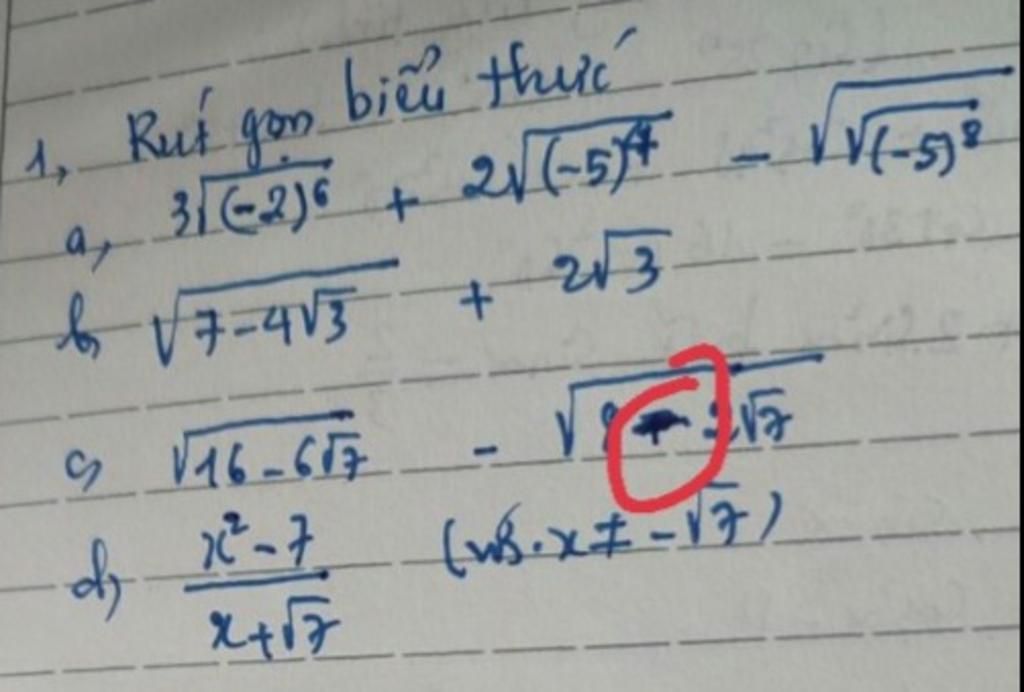 1, Rút gọn biểu thức
a, 3√(-2)⁶ + 2√(-5)⁴ - √√(-5)⁸
b, √7-4√3 + 2√3
c, √16-6√7 - √8 2√7
d, x²-7 / x+√7 (với x ≠ -√7)